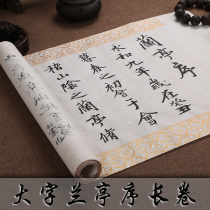 蘭亭序
永和九年歲在癸
暮春之初會于會
稽山陰之蘭亭脩
大字兰亭序长卷